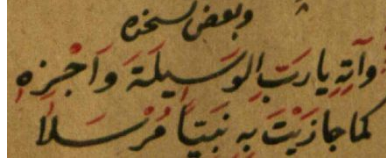 وبعض نسخه
وَآتِهِ يا رَبِّ الوَسِيلَةَ وَاَجْزِهِ
كما جازَيْتَ بِهِ نَبِيّاً مُرْسَلاً